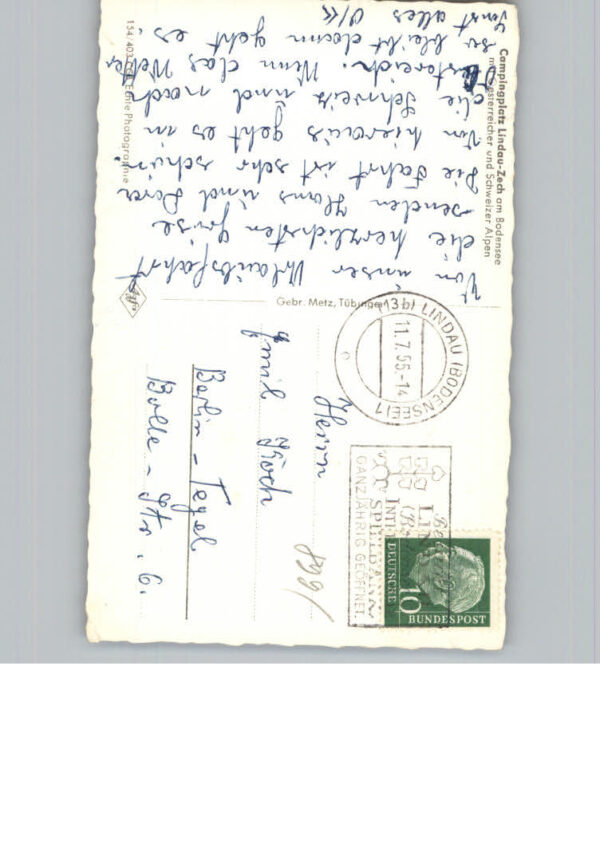 Campingplatz Lindau-Zech am Bodensee
mit Österreicher und Schweizer Alpen
Von unser Urlaubsfahrt
die herzlichsten Grüße
senden Hans und Dora
Die Fahrt ist sehr schön.
Von hieraus geht es in
die Schweiz und nach
Östereich. Wenn das Wetter
so bleibt dann geht es.
Sonst alles O/K
154/403 Echte Photographie
Agfa
Gebr. Metz, Tübingen
(13b) LINDAU (BODENSEE) 1
11.7.56-14
LIN
INTE
SPIELBANK
GANZJÄHRIG GEÖFFNET
DEUTSCHE
BUNDESPOST
10
Herrn
Emil Koch
Berlin - Tegel
Bolle - Str. 6.
899/